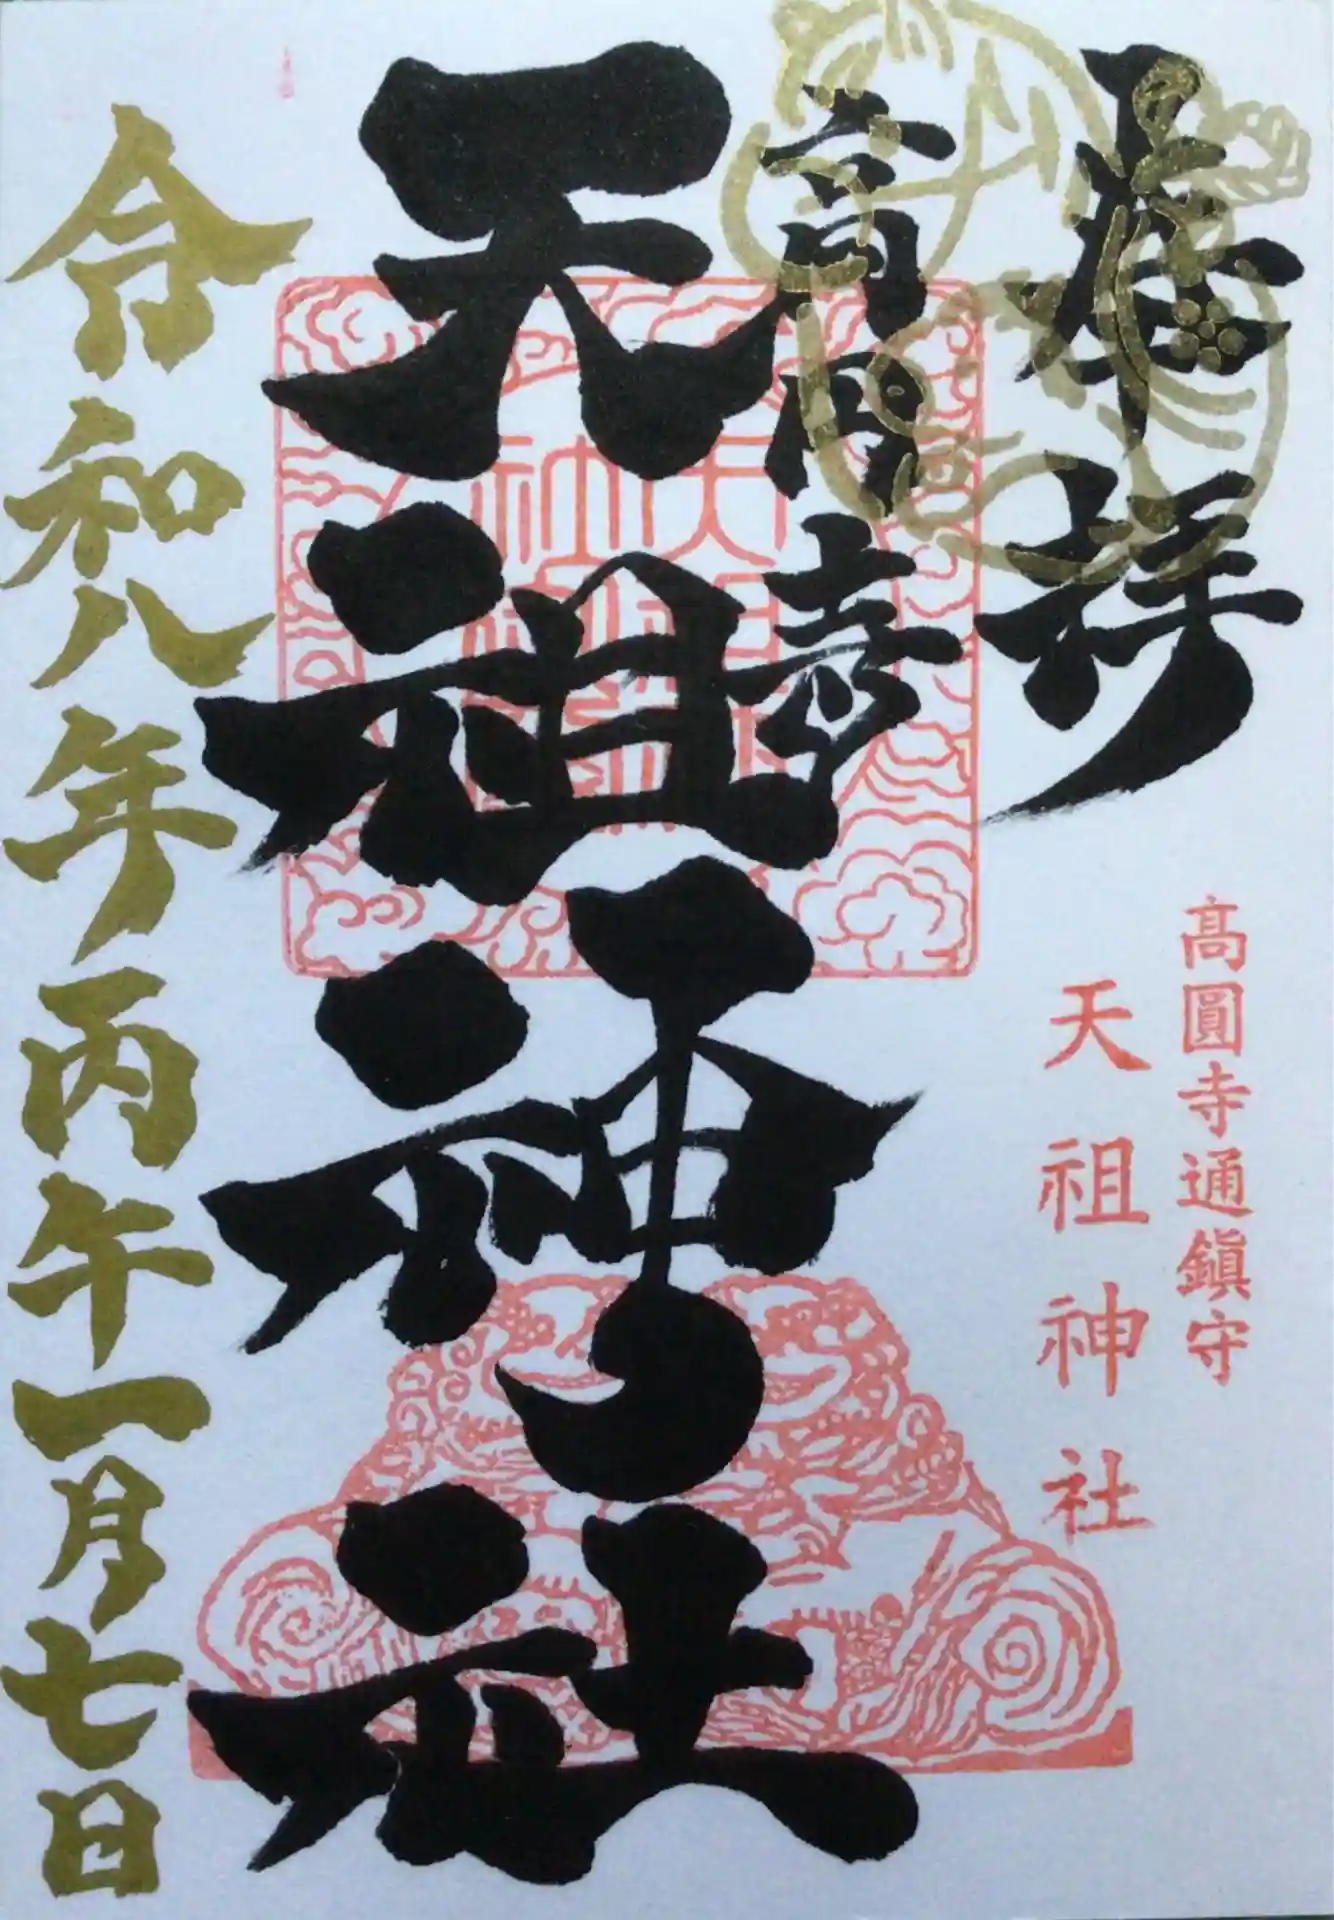 奉拝
高円寺
天祖神社
令和八年丙午一月七日
高圓寺通鎮守
天祖神社
天祖神社